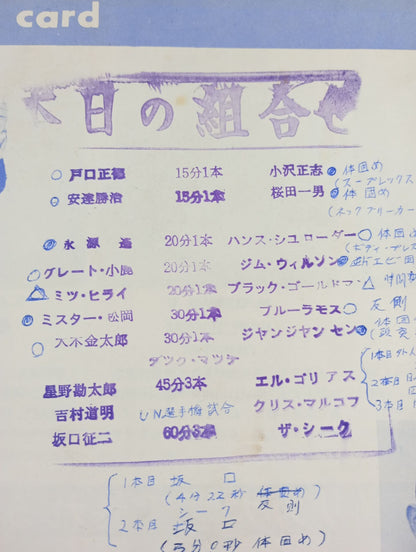 card
本日の組合せ
戸口正徳 15分1本 小沢正志 体固め
(スープレックス
安達勝治 15分1本 桜田一男 体固め
(ネックブリーカー
永源遙 20分1本 ハンス・シュローダー 体固め
(ボディ・プレス
グレート・小鹿 20分1本 ジム・ウィルソン 逆エビ固
ミツ・ヒライ 20分1本 ブラック・ゴールドマン 時間
ミスター・松岡 30分1本 ブルーラモス 反則
大木金太郎 30分1本 ジャンジャンセン 体固
1本目
タッグ・マッチ
2本目
星野勘太郎 45分3本 エル・ゴリアス
3本目
吉村道明 UN選手権試合 クリス・マルコフ
坂口征二 60分3本 ザ・シーク
1本目 坂口
(4分22秒 反則)
シーク
2本目 坂口
(5分0秒 体固め)